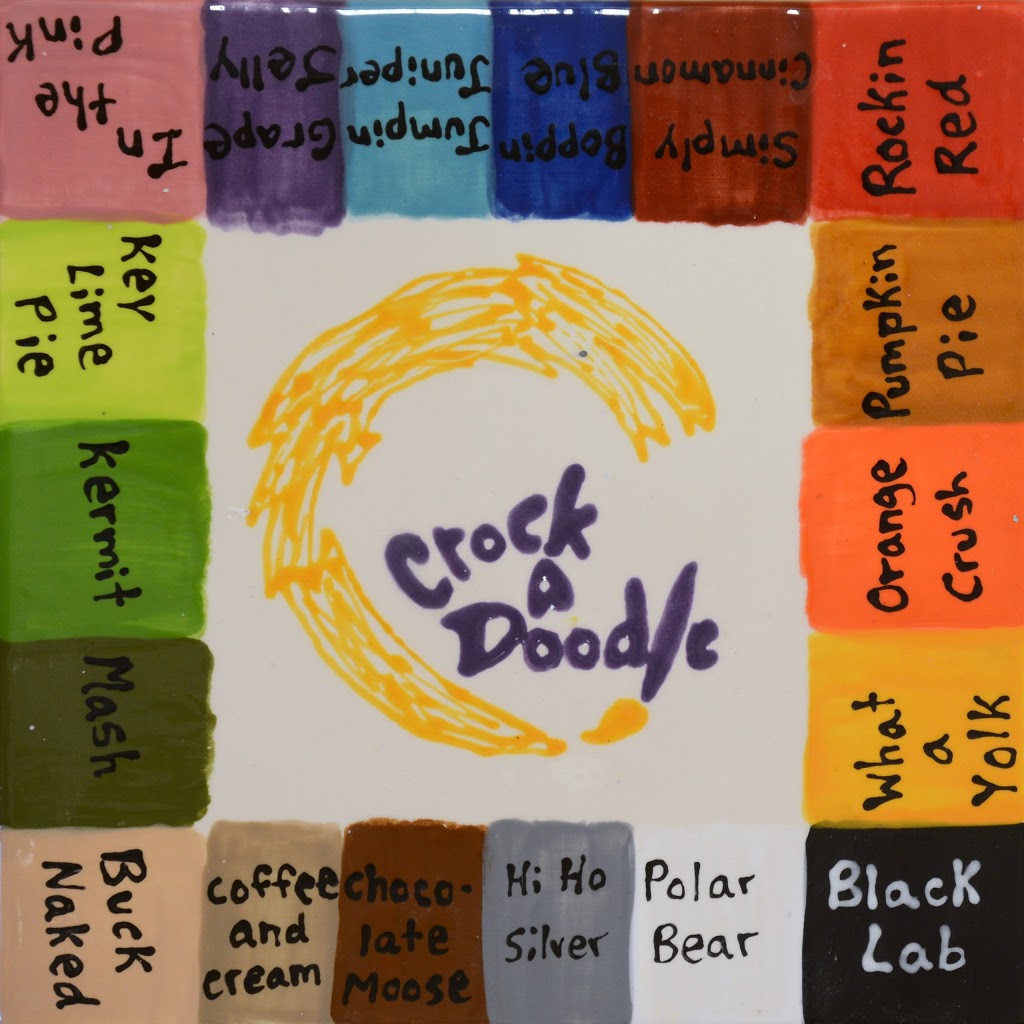 In
the
Pink
Grape
Jelly
Jumpin
Juniper
Boppin
Blue
Simply
Cinnamon
Rockin
Red
Key
Lime
Pie
Pumpkin
Pie
Kermit
Orange
Crush
Mash
What
a
Yolk
Crock
A
Doodle
Buck
Naked
coffee
and
cream
choco-
late
Moose
Hi Ho
Silver
Polar
Bear
Black
Lab